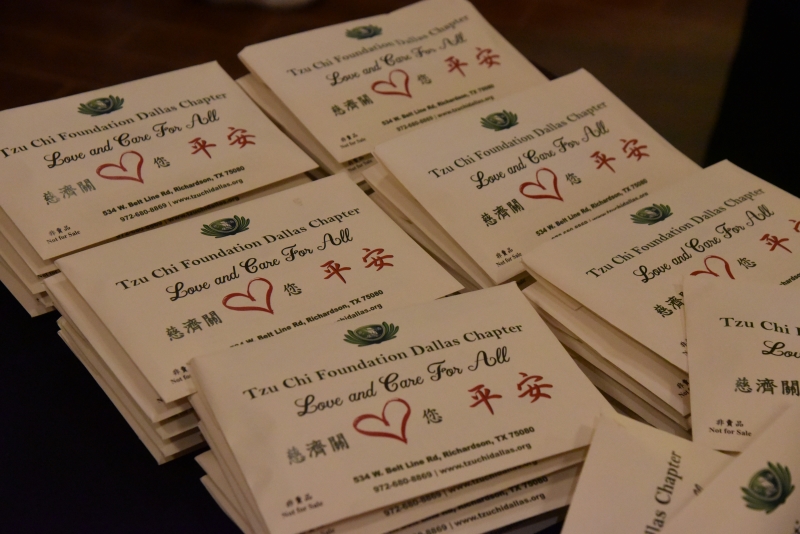 Tzu Chi Foundation Dallas Chapter
Love and Care For All
慈濟關 您 平安
534 W. Belt Line Rd, Richardson, TX 75080
972-680-8869 | www.tzuchidallas.org
非賣品
Not for Sale
Tzu Chi Foundation Dallas Chapter
Love and Care For All
慈濟關 您 平安
534 W. Belt Line Rd, Richardson, TX 75080
972-680-8869 | www.tzuchidallas.org
非賣品
Not for Sale
Tzu Chi Foundation Dallas Chapter
Love and Care For All
慈濟關 您 平安
534 W. Belt Line Rd, Richardson, TX 75080
非賣品
Not for Sale
Tzu Chi Foundation Dallas Chapter
Love and Care For All
慈濟關 您 平安
534 W. Belt Line Rd, Richardson, TX 75080
www.tzuchidallas.org
Tzu Chi Foundation Dallas Chapter
Love and Care For All
慈濟關 平安
TX 75080
Tzu Chi Foundation Dallas Chapter
Love and Care For All
慈濟關 您 平安
534 W. Belt Line Rd, Richardson, TX 75080
972-680-8869 | www.tzuchidallas.org
非賣品
Not for Sale
www.tzuchidallas.org
Tzu Chi
慈濟關
非賣品
Not for Sale
Chapter